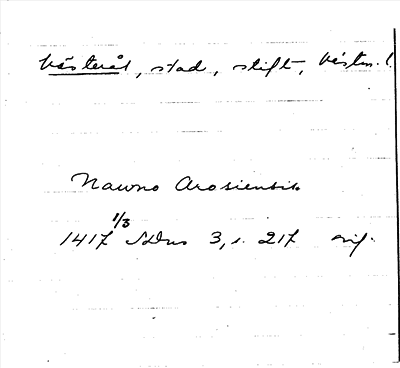 Västerås, stad, stift, Västm. l
Nawno Arosiensis
1417 1/3 SDns 3, s. 217 orig.